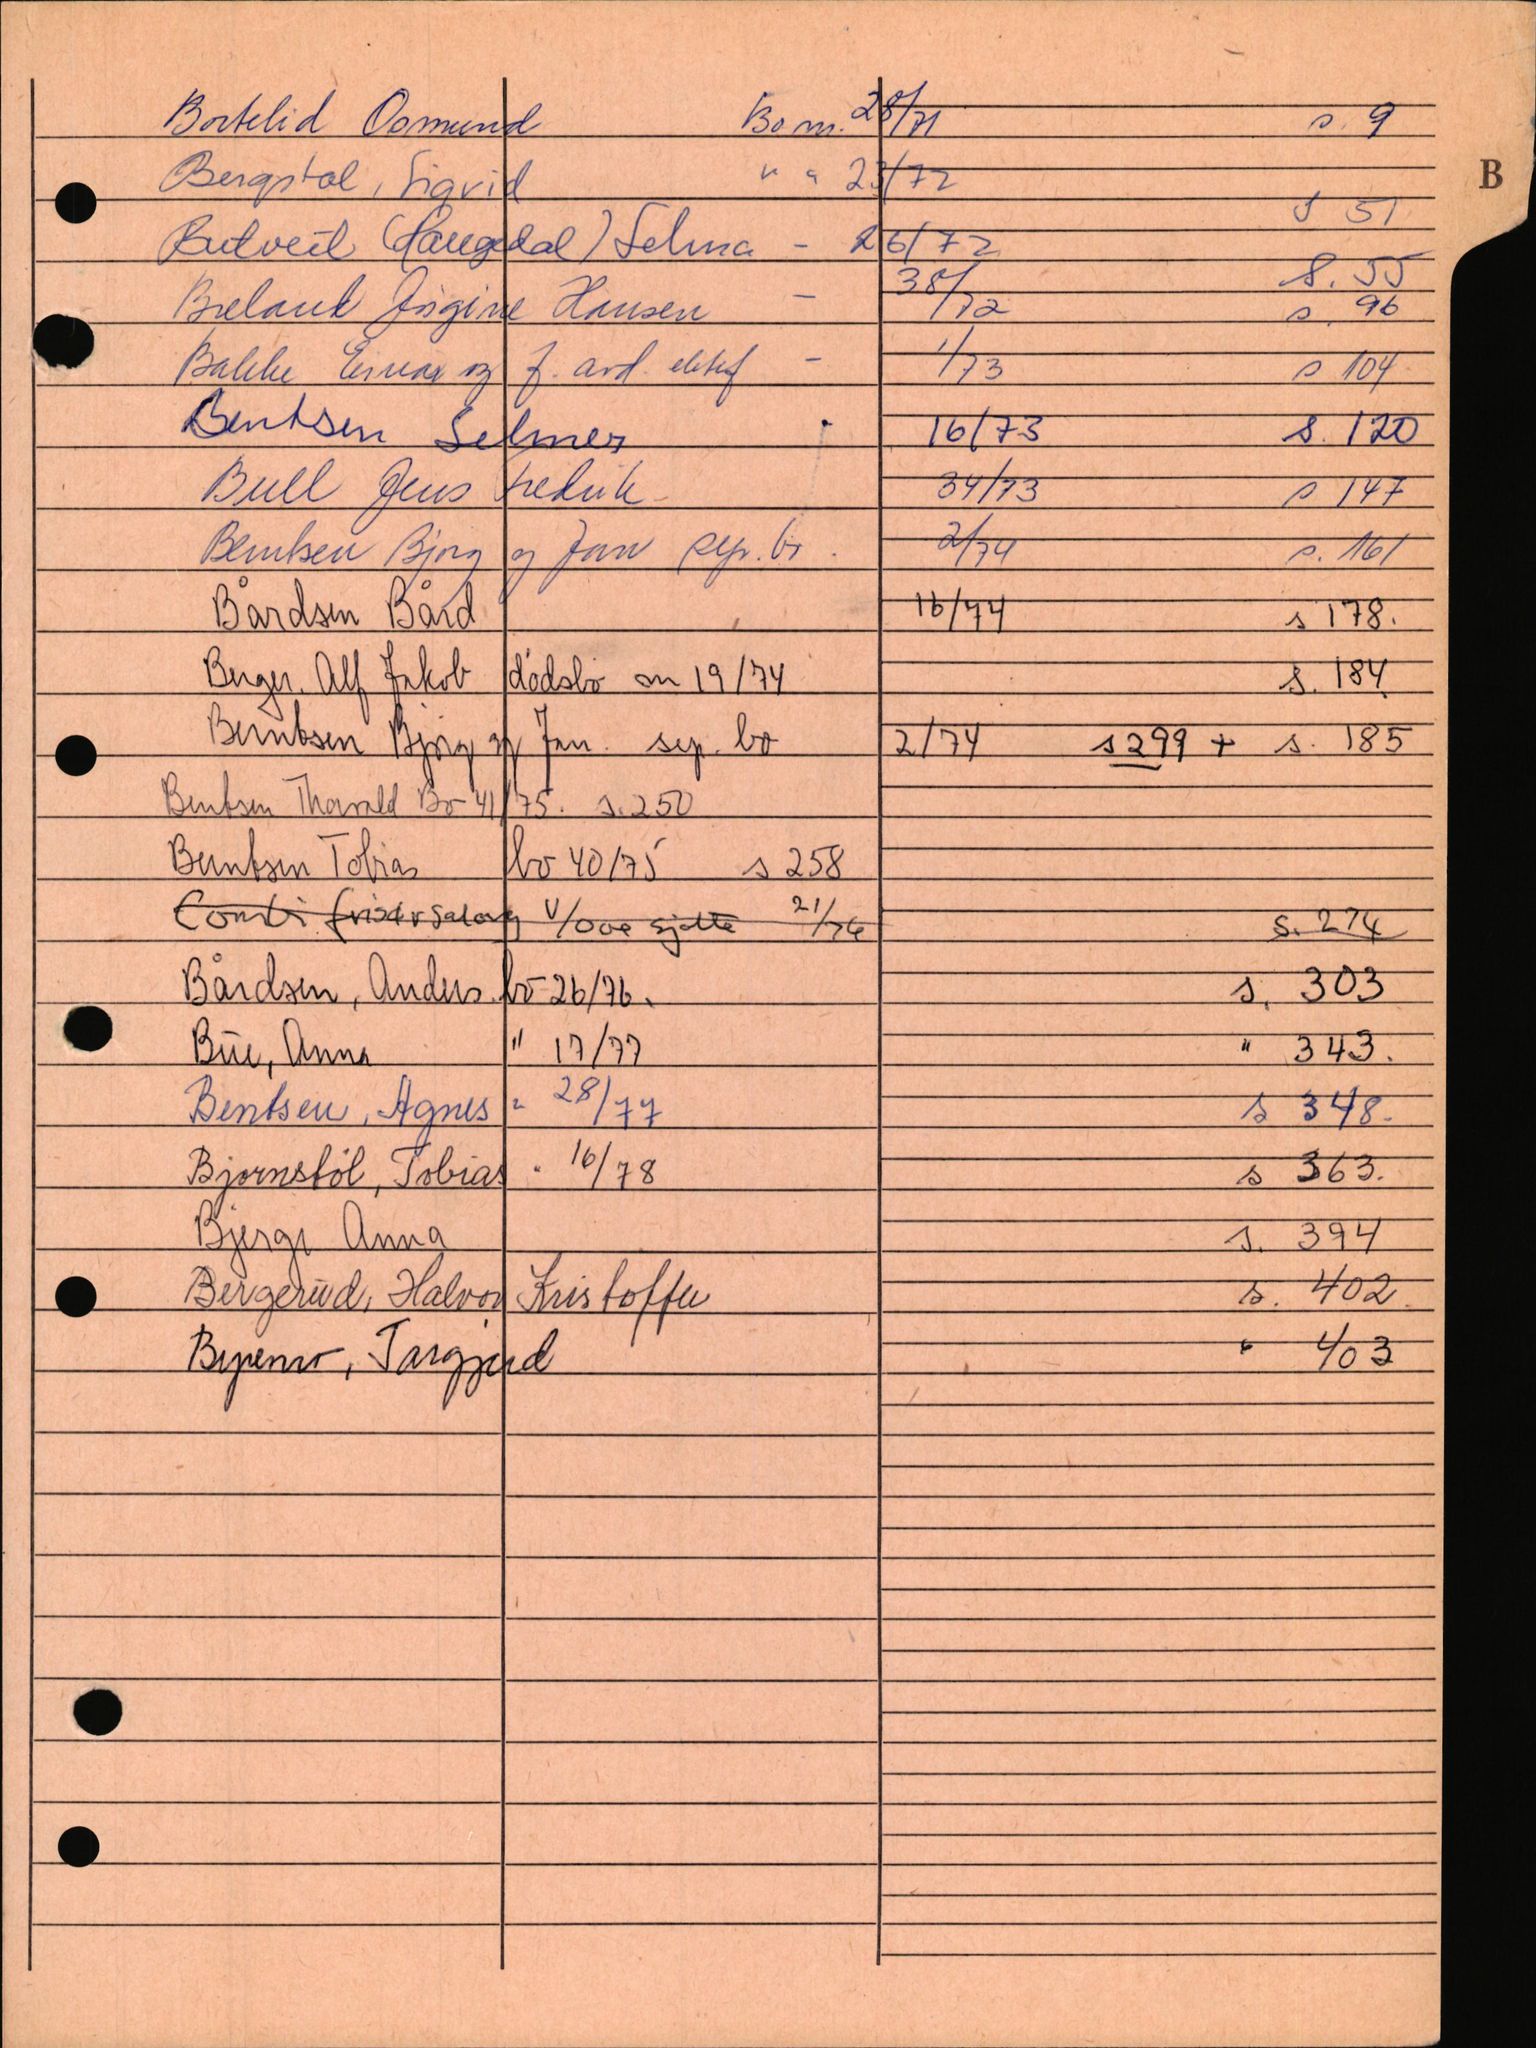 B
Bortelid Osmund Bo nr. 28/71 s. 9
Bergstøl, Sigrid " " 23/72 s 51
Butveit (Haugedal) Selma - 26/72 S. 55
Breland Jørgine Hansen - 38/72 s. 96
Bakke Einar og f. avd. ektef - 1/73 s 104
Bentsen Selmer 16/73 s. 120
Bull Jens Fredrik 34/73 s 147
Berntsen Bjørg og Jan sep. bo. 2/74 s. 161
Bårdsen Bård 16/74 s 178.
Berger, Alf Jakob dødsbo nr 19/74 s. 184
Berntsen Bjørg og Jan. sep. bo 2/74 s 299 + s. 185
Bentsen Thorvald Bo 41/75. s. 250
Berntsen Tobias bo 40/75 s 258
Combi frisørsalong v/Ove Sjøtte 21/76 s. 274
Bårdsen, Anders. bo 26/76. s. 303
Bue, Anna " 17/77 " 343.
Bentsen, Agnes " 28/77 s 348.
Bjørnstøl, Tobias " 16/78 s 363.
Bjerge Anna s. 394
Bergerud, Halvor Kristoffer s. 402.
Torgjerd " 403